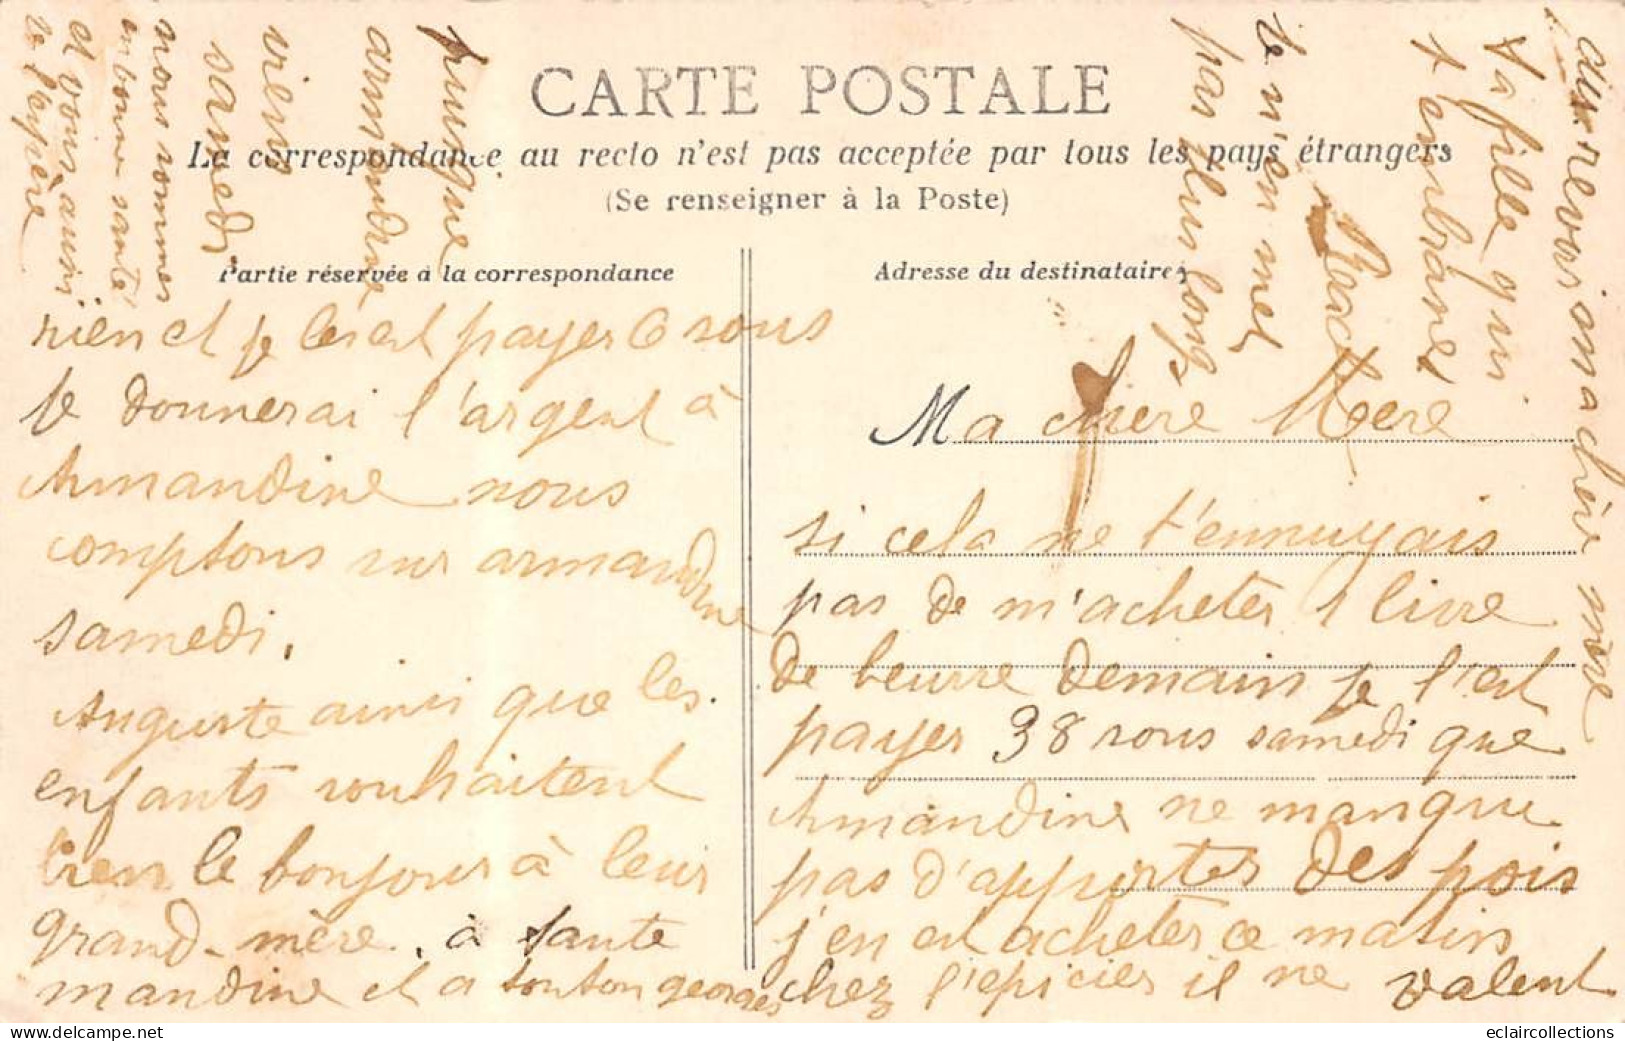 CARTE POSTALE
La correspondance au recto n'est pas acceptée par tous les pays étrangers
(Se renseigner à la Poste)
Partie réservée à la correspondance
Adresse du destinataire
Ma chere Mere
si cela ne t'ennuyais
pas de m'acheter 1 livre
de beurre demain je l'est
payer 38 sous samedi que
Amandine ne manque
pas d'apporter des pois
j'en est acheter ce matin
chez l'epicier il ne valent
rien et je les est payer 6 sous
je donnerai l'argent à
Amandine nous
comptons sur armandine
samedi.
Auguste ainsi que les
enfants souhaitent
bien le bonjour à leur
grand-mère, à tante
mandine et a tonton georges
puisque
armandine
viens
samedi
nous sommes
en bonne santé
et vous aussi
je l'espère
pas plus long
je n'en met
Ta fille qui
t'embrasse
au revoir ma chère mère
eclaircollections